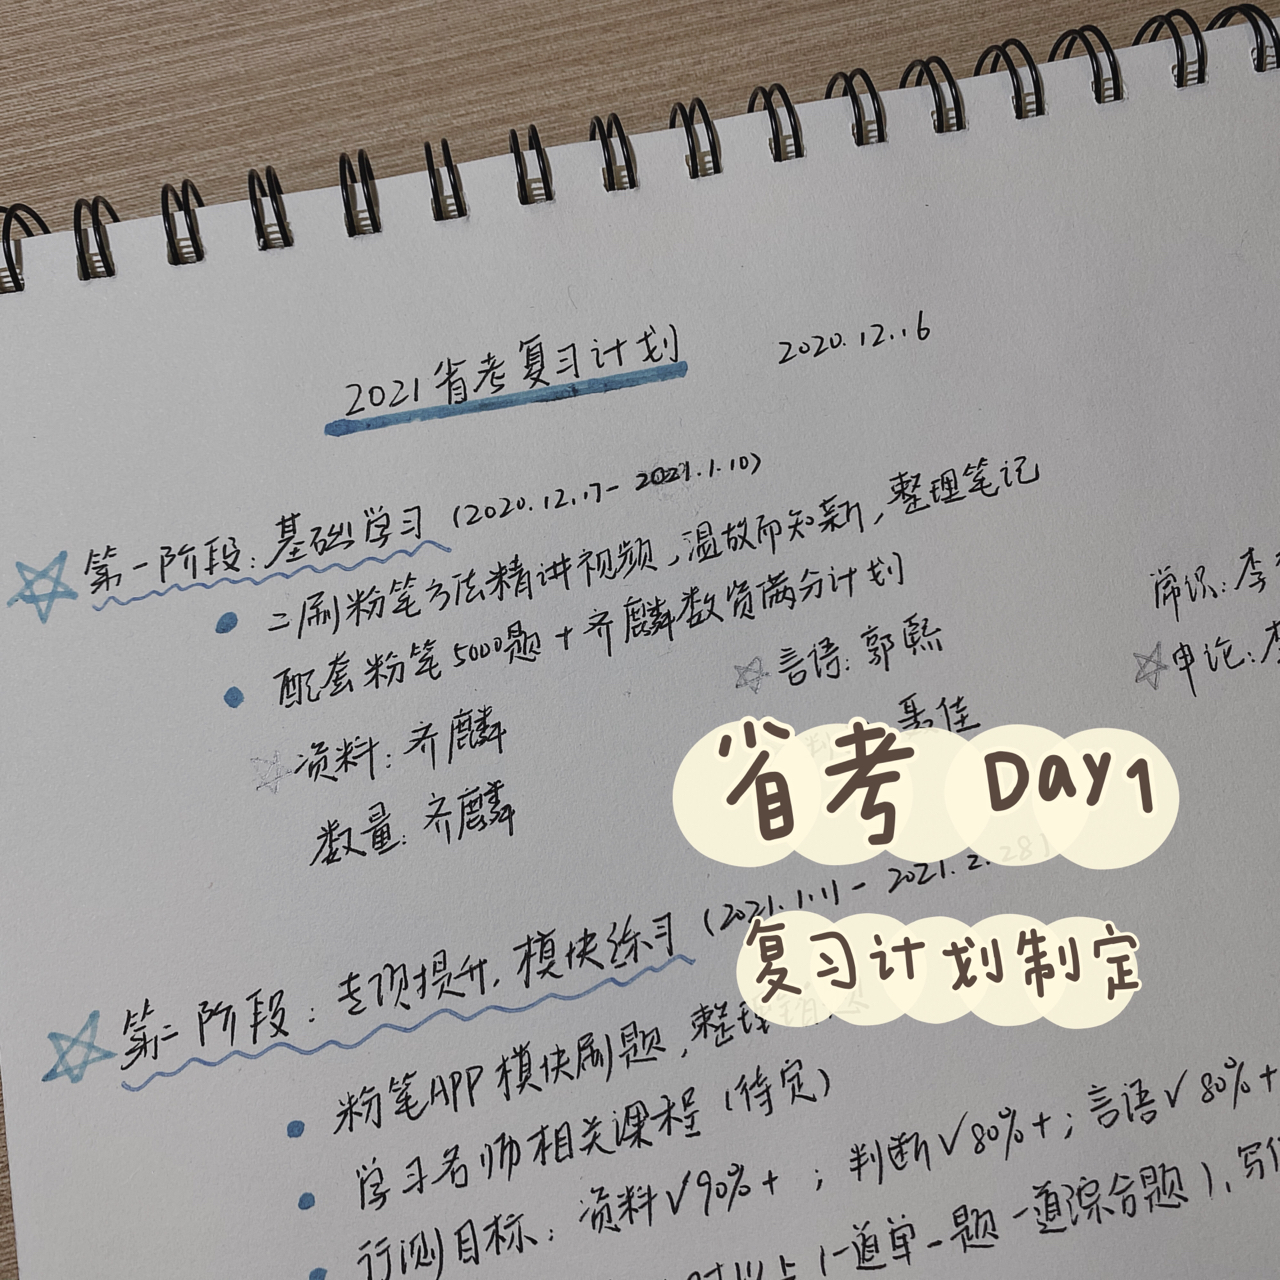 2021省考复习计划 2020.12.16
第一阶段:基础学习 (2020.12.17-2021.1.10)
二刷粉笔方法精讲视频,温故而知新,整理笔记
配套粉笔5000题+齐麟数资满分计划
资料:齐麟
言语:郭熙
常识:李
数量:齐麟
佳
申论:李
省考 Day1
第二阶段:专项提升,模块练习 (2021.1.11-2021.2.28)
复习计划制定
粉笔APP模块刷题,整理错题
学习名师相关课程(待定)
行测目标:资料√90%+;判断√80%+;言语√80%+
以上(一道单一题一道综合题),写